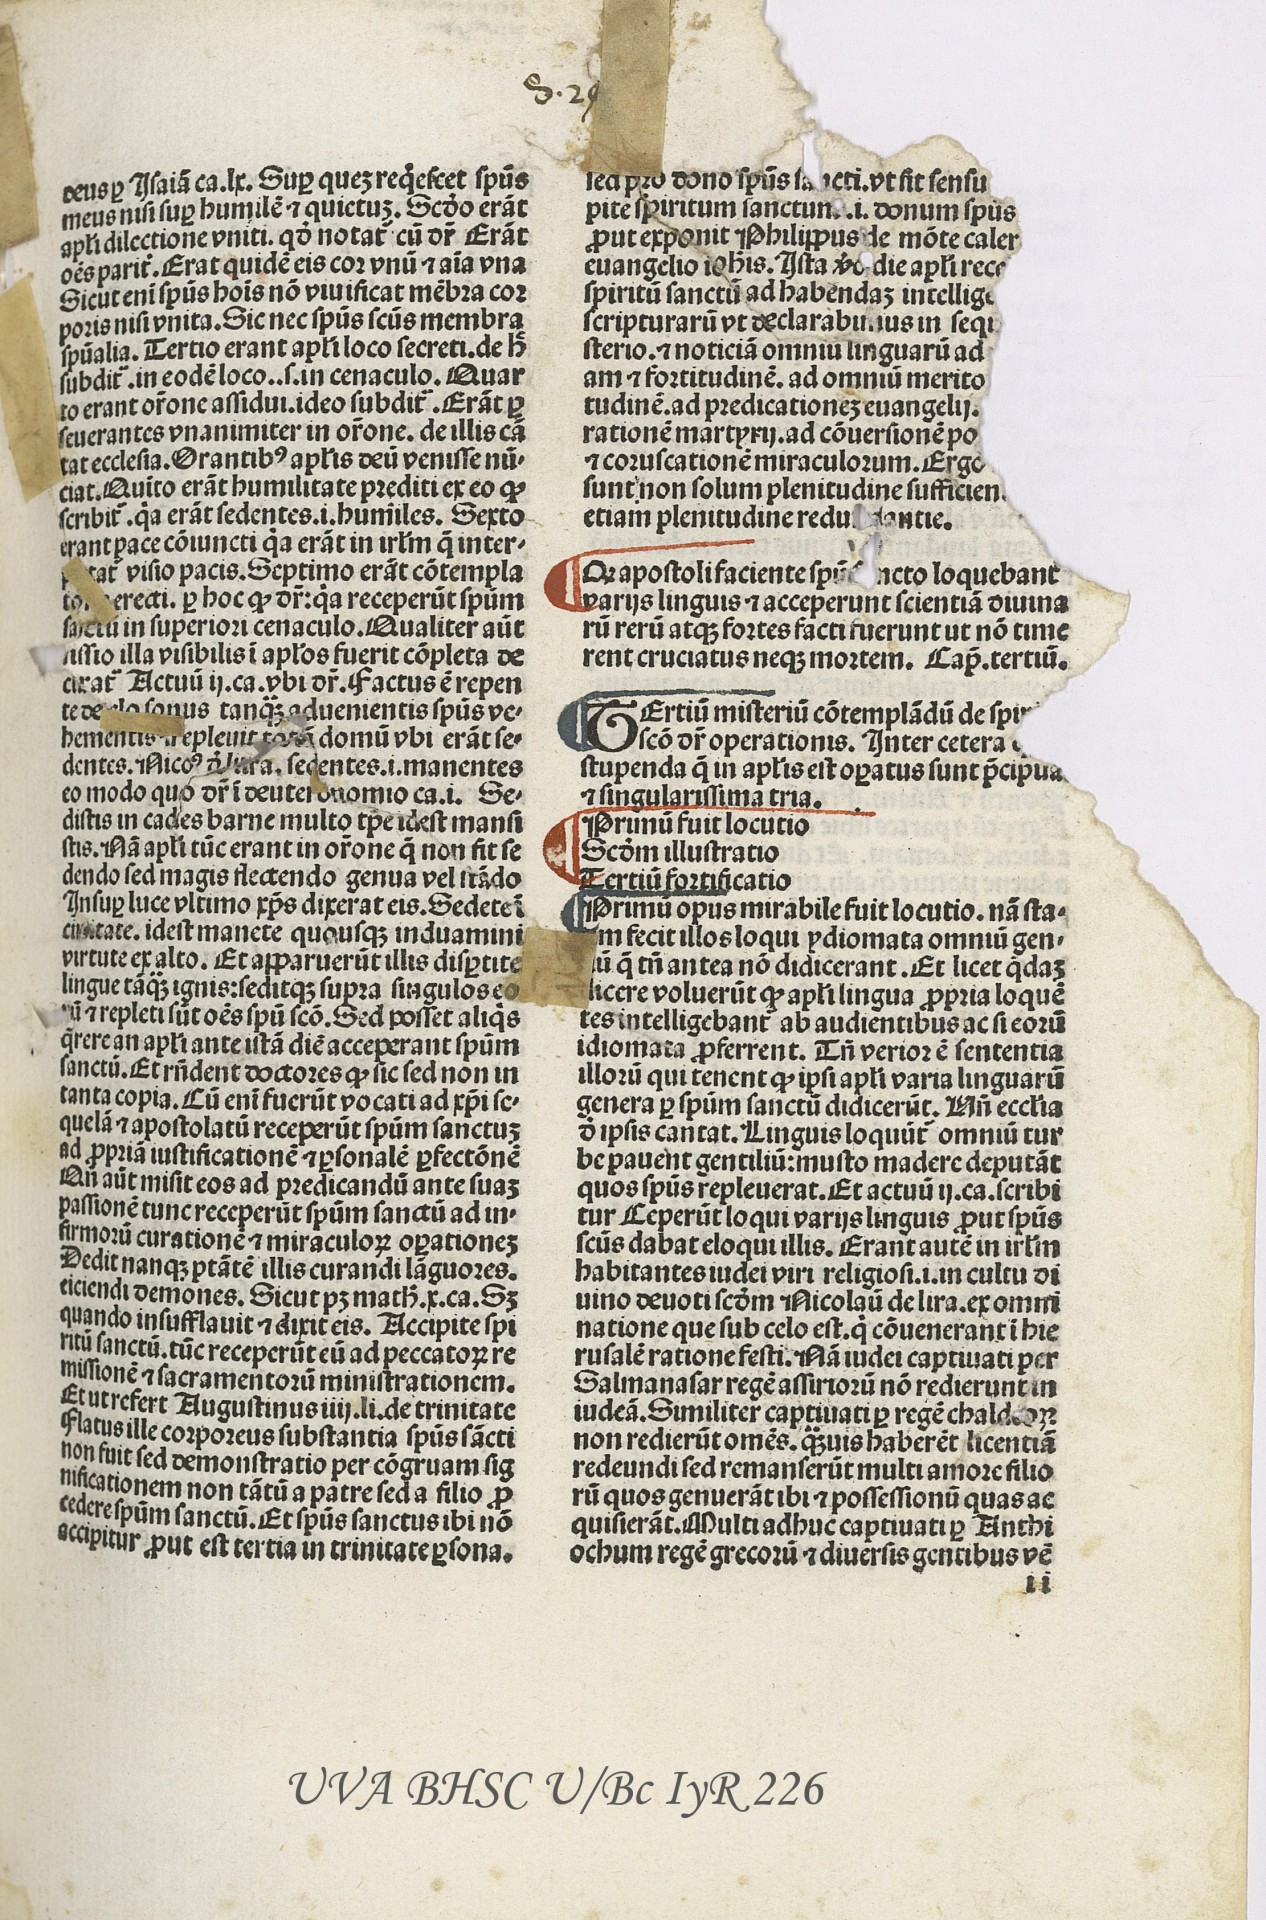 S. 29
deus ꝑ Jsaiã ca.lx. Suꝑ quez reqͥescet spũs
meus nisi suꝑ humilẽ ⁊ quietuꝫ. Scðo erãt
apłi dilectione vniti. qð notat᷑ cũ dr̃ Erãt
oẽs parit᷑. Erat quidẽ eis cor vnũ ⁊ aĩa vna
Sicut eni spũs hoĩs nõ viuificat mẽbra cor
poris nisi vnita. Sic nec spũs scũs membra
spũalia. Tertio erant apłi loco secreti. de h̃
subdit᷑. in eodẽ loco..s.in cenaculo. Quar
to erant or̃one assidui. ideo subdit᷑. Erãt ꝑ
seuerantes vnanimiter in or̃one. de illis cã
tat ecclesia. Orantibꝰ apłis deũ venisse nũ-
ciat. Quĩto erãt humilitate prediti ex eo ꝙ
scribit᷑. qͥa erãt sedentes.i.humiles. Sexto
erant pace cõiuncti qͥa erãt in irłm q̃ inter-
visio pacis. Septimo erãt cõtempla
erecti. ꝑ hoc ꝙ dr̃: qͥa receperũt spũm
in superiori cenaculo. Qualiter aũt
missio illa visibilis ĩ apłos fuerit cõpleta de
clarat᷑ Actuũ ij.ca.vbi dr̃. Factus ẽ repen
te de celo sonus tanqͣꝫ aduenientis spũs ve-
hementis ⁊ repleuit totã domũ vbi erãt se-
dentes. Nicoꝰ ð lira. sedentes.i.manentes
eo modo quo dr̃ ĩ deuteronomio ca.i. Se-
distis in cades barne multo tp̃e idest mansi
stis. Nã apłi tũc erant in or̃one q̃ non fit se
dendo sed magis flectendo genua vel stãdo
Insuꝑ luce vltimo xp̃s dixerat eis. Sedete ĩ
ciuitate. idest manete quousqꝫ induamini
virtute ex alto. Et apparuerũt illis disꝑtite
lingue tãqͣꝫ ignis: seditqꝫ supra singulos eo
rũ ⁊ repleti sũt oẽs spũ scõ. Sed posset aliqͥs
qͥrere an apłi ante istã diẽ acceperant spũm
sanctũ. Et rñdent doctores ꝙ sic sed non in
tanta copia. Cũ eni fuerũt vocati ad xp̃i se-
quelã ⁊ apostolatũ receperũt spũm sanctuꝫ
ad ꝓpriã iustificationẽ ⁊ ꝑsonalẽ ꝑfectõnẽ
Qñ aũt misit eos ad predicandũ ante suaꝫ
passionẽ tunc receperũt spũm sanctũ ad in-
firmorũ curationẽ ⁊ miraculoꝝ oꝑationeꝫ
Dedit nanqꝫ ptãtẽ illis curandi lãguores.
eiciendi demones. Sicut pꝫ math.x.ca. Sꝫ
quando insufflauit ⁊ dixit eis. Accipite spi
ritũ sanctũ. tũc receperũt eũ ad peccatoꝝ re
missionẽ ⁊ sacramentorũ ministrationem.
Et ut refert Augustinus iiij.li.de trinitate
Flatus ille corporeus substantia spũs sãcti
non fuit sed demonstratio per cõgruam sig
nificationem non tãtũ a patre sed a filio ꝓ
cedere spũm sanctũ. Et spũs sanctus ibi nõ
accipitur ꝓut est tertia in trinitate ꝑsona.
sed pro dono spũs sancti. vt sit sensu
pite spiritum sanctum.i. donum spũs
ꝓut exponit Philippus de mõte caler
euangelio iohis. Ista ṽo die apłi rece
spiritũ sanctũ ad habendaꝫ intellige
scripturarũ vt declarabimus in sequ
sterio. ⁊ noticiã omniũ linguarũ ad
am ⁊ fortitudinẽ. ad omniũ merito
tudinẽ. ad predicationeꝫ euangelij.
rationẽ martyrij. ad cõuersionẽ po
⁊ coruscationẽ miraculorum. Ergo
sunt non solum plenitudine sufficien
etiam plenitudine redundantie.
Qꝛ apostoli faciente spũ sancto loquebant᷑
varijs linguis ⁊ acceperunt scientiã diuina
rũ rerũ atqꝫ fortes facti fuerunt ut nõ time
rent cruciatus neqꝫ mortem. Cap̃. tertiũ.
TErtiũ misteriũ cõtemplãdũ de spir
scõ dr̃ operationis. Inter cetera
stupenda q̃ in apłis est oꝑatus sunt p̃cipua
⁊ singularissima tria.
Primũ fuit locutio
Scðm illustratio
Tertiũ fortificatio
Primũ opus mirabile fuit locutio. nã sta-
tim fecit illos loqui ydiomata omniũ gen-
tiũ q̃ tñ antea nõ didicerant. Et licet qͥdaꝫ
dicere voluerũt ꝙ apłi lingua ꝓpria loquẽ
tes intelligebant᷑ ab audientibus ac si eorũ
idiomata ꝓferrent. Tñ verior ẽ sententia
illorũ qui tenent ꝙ ipsi apłi varia linguarũ
genera ꝑ spũm sanctũ didicerũt. Vñ ecclia
ð ipsis cantat. Linguis loquũt᷑ omniũ tur
be pauent gentiliũ: musto madere deputãt
quos spũs repleuerat. Et actuũ ij.ca.scribi
tur Ceperũt loqui varijs linguis ꝓut spũs
scũs dabat eloqui illis. Erant autẽ in irłm
habitantes iudei viri religiosi.i.in cultu di
uino deuoti scðm Nicolaũ de lira. ex omni
natione que sub celo est. qͥ cõuenerant ĩ hie
rusalẽ ratione festi. Nã iudei captiuati per
Salmanasar regẽ assiriorũ nõ redierunt in
iudeã. Similiter captiuati ꝑ regẽ chaldeoꝝ
non redierũt omẽs. qͣꝫuis haberẽt licentiã
redeundi sed remanserũt multi amore filio
rũ quos genuerãt ibi ⁊ possessionũ quas ac
quisierãt. Multi adhuc captiuati ꝑ Anthi
ochum regẽ grecorũ ⁊ diuersis gentibus vẽ
ii
UVA BHSC U/Bc IyR 226